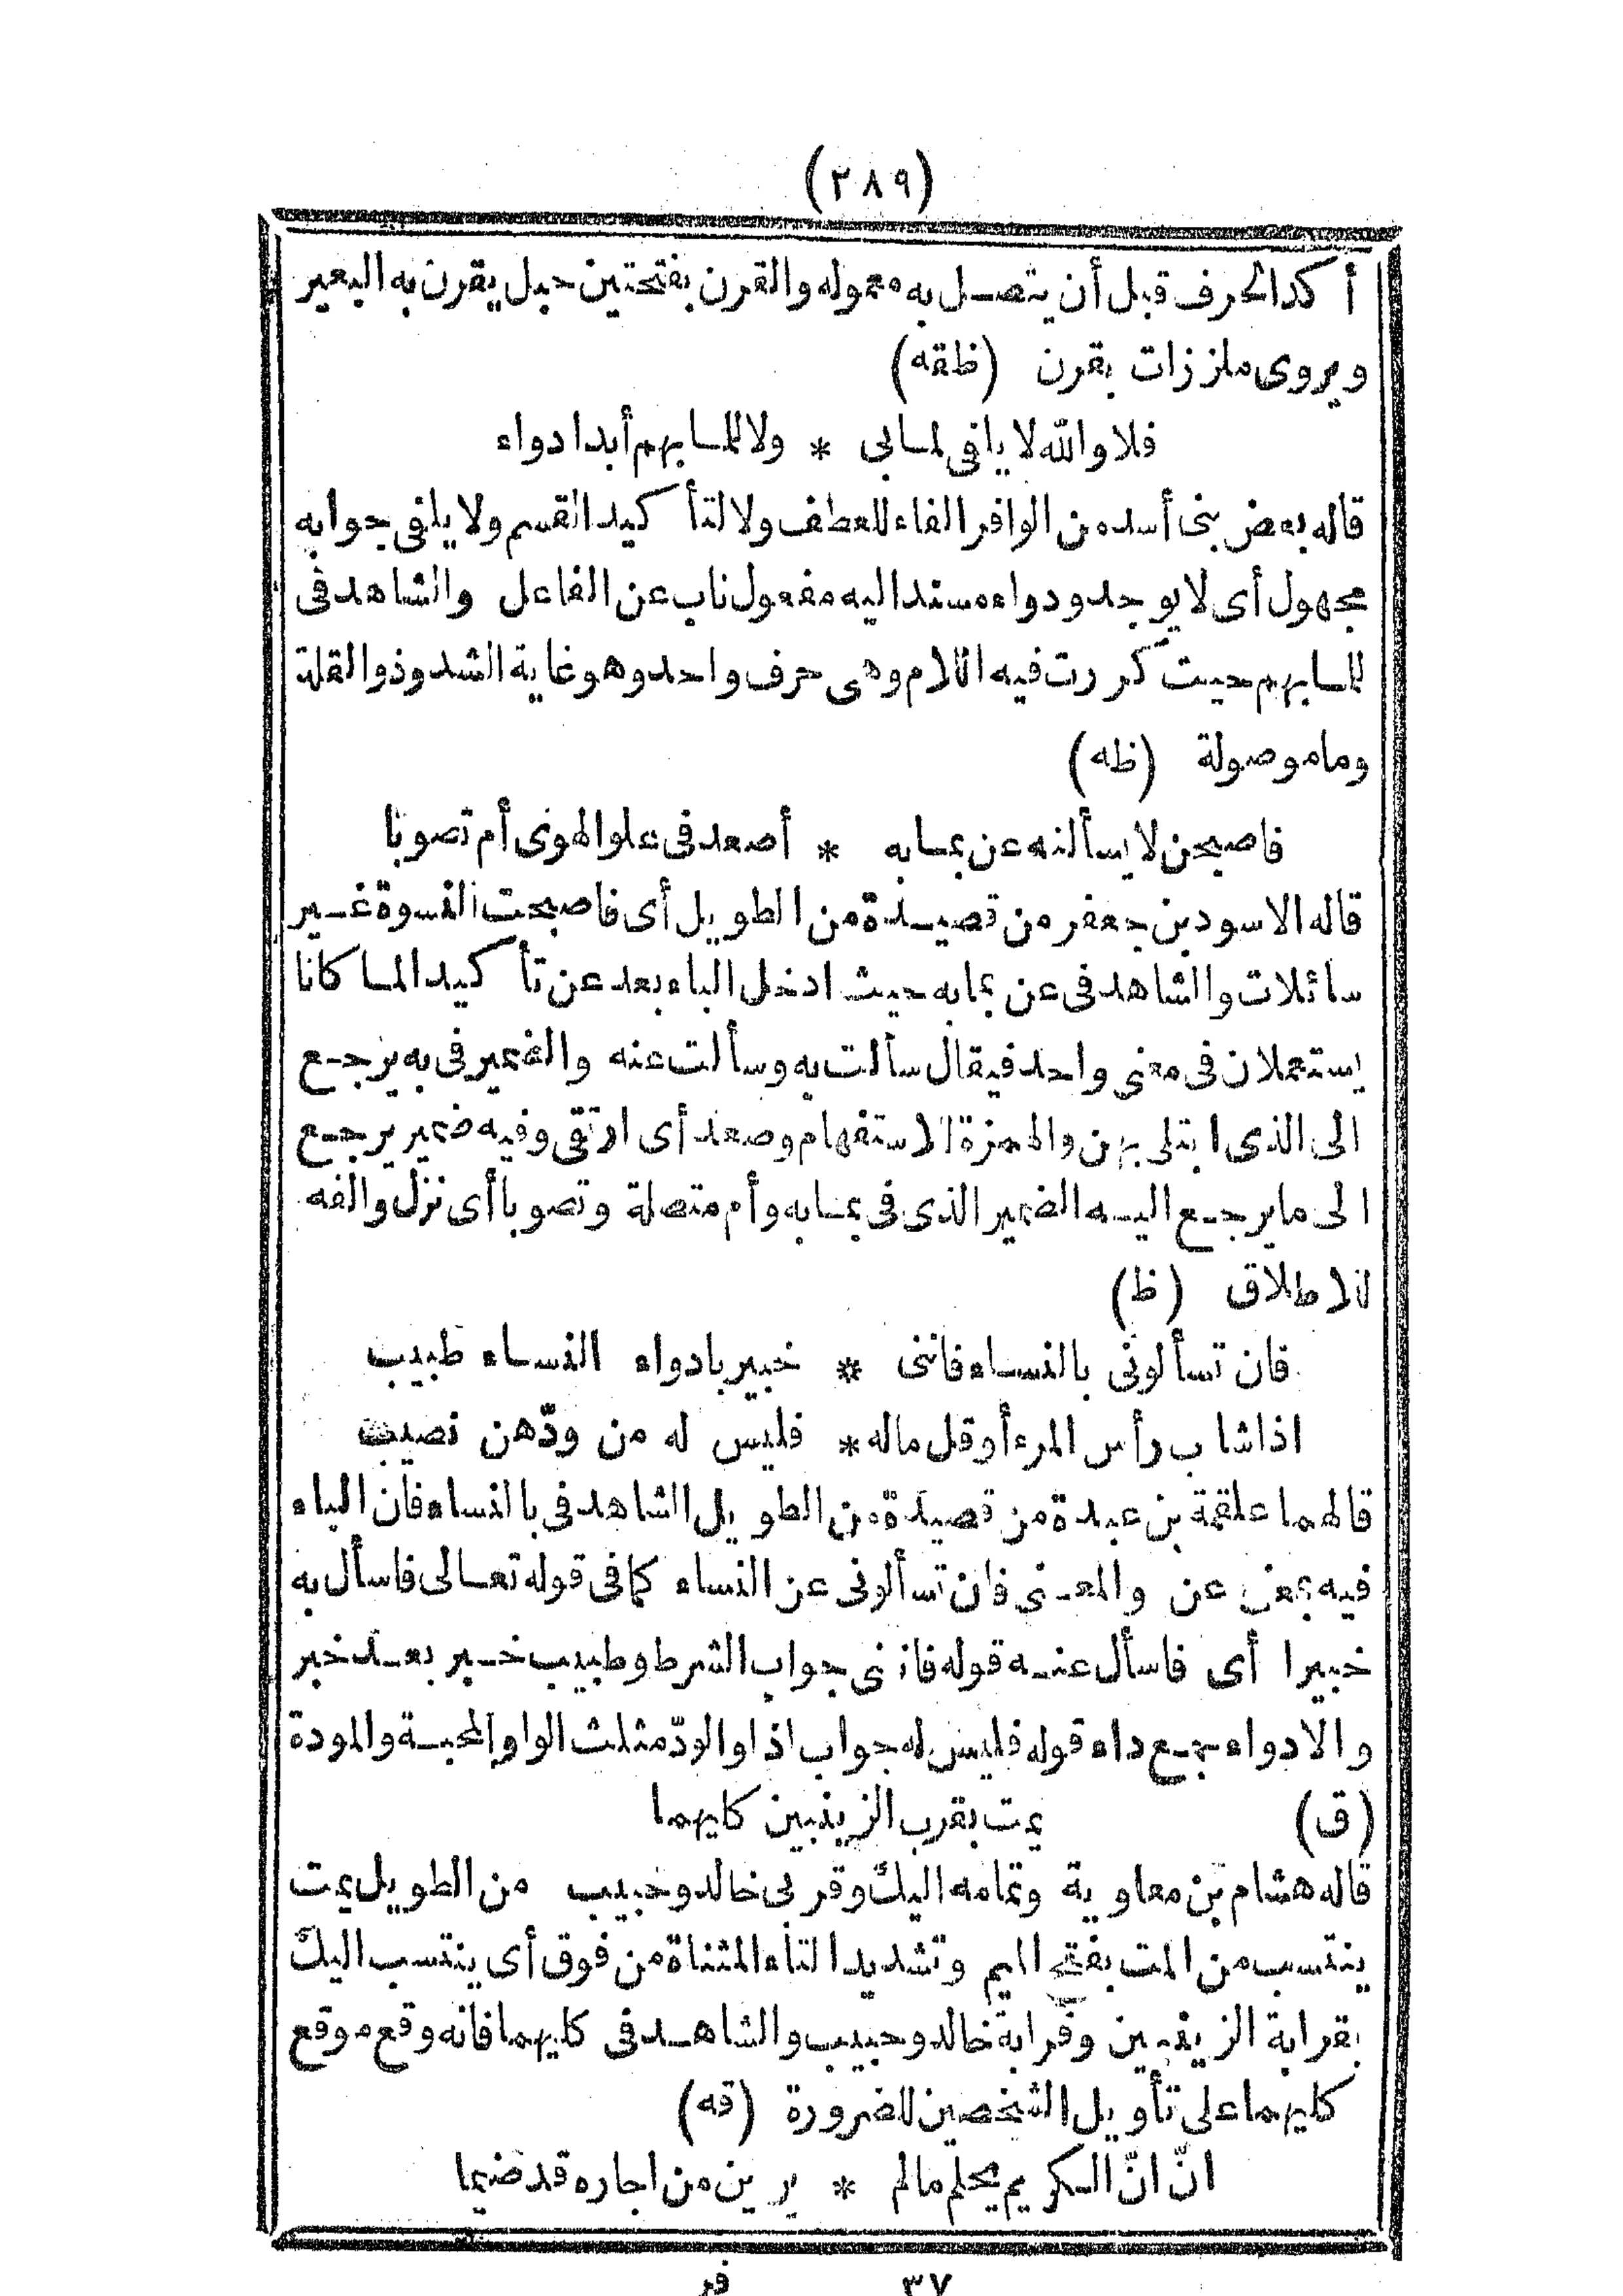 (٢٨٩)
أكد الحرف قبل أن يتصل به معموله والقرن بفتحتين حبل يقرن به البعير
ويروى ملززات بقرن (ظقه)
فلا والله لا يلفى لمابى * ولا للمابهم أبدا دواء
قاله بعض بنى أسد من الوافر الفاء للعطف ولا لتأكيد القسم ولا يلفى جوابه
مجهول أى لا يوجد ودواء مسند اليه مفعول ناب عن الفاعل والشاهد فى
للمابهم حيث كررت فيه اللام وهى حرف واحد وهو غاية الشذوذ والقلة
وما موصولة (ظه)
فاصبحن لا يسألنه عن بمابه * أصعد فى علو الهوى أم تصوبا
قاله الاسود بن جعفر من قصيدة من الطويل أى فاصبحت النسوة غير
سائلات والشاهد فى عن بمابه حيث ادخل الباء بعد عن تأكيدا لما كانا
يستعملان فى معنى واحد فيقال سألت به وسألت عنه والضمير فى به يرجع
الى الذى ابتلى بهن والهمزة للاستفهام وصعد أى ارتقى وفيه ضمير يرجع
الى ما يرجع اليه الضمير الذى فى بمابه وأم متصلة وتصوبا أى نزل والفه
للاطلاق (ظ)
فان تسألونى بالنساء فاننى * خبير بادواء النساء طبيب
اذا شاب رأس المرء أو قل ماله * فليس له من ودّهن نصيب
قالهما علقمة بن عبدة من قصيدة من الطويل الشاهد فى بالنساء فان الباء
فيه بمعنى عن والمعنى فان تسألونى عن النساء كما فى قوله تعالى فاسأل به
خبيرا أى فاسأل عنه قوله فاننى جواب الشرط وطبيب خبر بعد خبر
والادواء جمع داء قوله فليس له جواب اذا والودّ مثلث الواو المحبة والمودة
(ق) يمت بقرب الزينبين كليهما
قاله هشام بن معاوية وتمامه اليك وقربى خالد وحبيب من الطويل يمت
ينتسب من المت بفتح الميم وتشديد التاء المثناة من فوق أى ينتسب اليك
بقرابة الزينبين وقرابة خالد وحبيب والشاهد فى كليهما فانه وقع موقع
كليهما على تأويل الشخصين للضرورة (قه)
انّ انّ الكريم يحلم مالم * يرين من اجاره قد ضيما
٣٧ فر